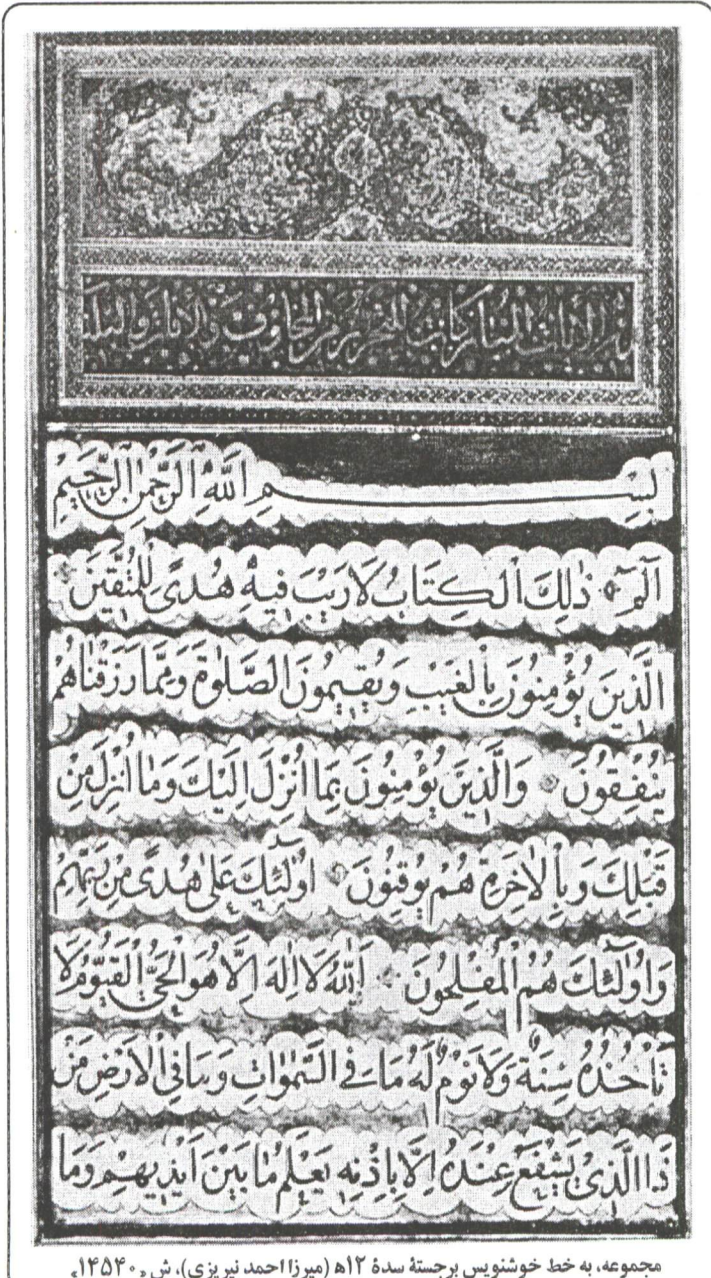 كانت للتحرز من المخاوف
بِسْمِ اللهِ الرَّحْمٰنِ الرَّحِيمِ
الٓمٓ ذٰلِكَ الْكِتَابُ لَارَيْبَ فِيهِ هُدًى لِلْمُتَّقِينَ
الَّذِينَ يُؤْمِنُونَ بِالْغَيْبِ وَيُقِيمُونَ الصَّلٰوةَ وَمِمَّا رَزَقْنَاهُمْ
يُنْفِقُونَ وَالَّذِينَ يُؤْمِنُونَ بِمَا اُنْزِلَ اِلَيْكَ وَمَا اُنْزِلَ مِنْ
قَبْلِكَ وَبِالْاٰخِرَةِ هُمْ يُوقِنُونَ اُولٰٓئِكَ عَلٰى هُدًى مِنْ رَبِّهِمْ
وَاُولٰٓئِكَ هُمُ الْمُفْلِحُونَ اَللهُ لَا اِلٰهَ اِلَّا هُوَ الْحَيُّ الْقَيُّومُ لَا
تَأْخُذُهُ سِنَةٌ وَلَا نَوْمٌ لَهُ مَا فِي السَّمٰوَاتِ وَمَا فِي الْاَرْضِ مَنْ
ذَا الَّذِي يَشْفَعُ عِنْدَهُ اِلَّا بِاِذْنِهِ يَعْلَمُ مَا بَيْنَ اَيْدِيهِمْ وَمَا
مجموعه، به خط خوشنویس برجستهٔ سدهٔ ۱۲ه‍ (میرزا احمد نیریزی)، ش «۱۴۵۴۰»